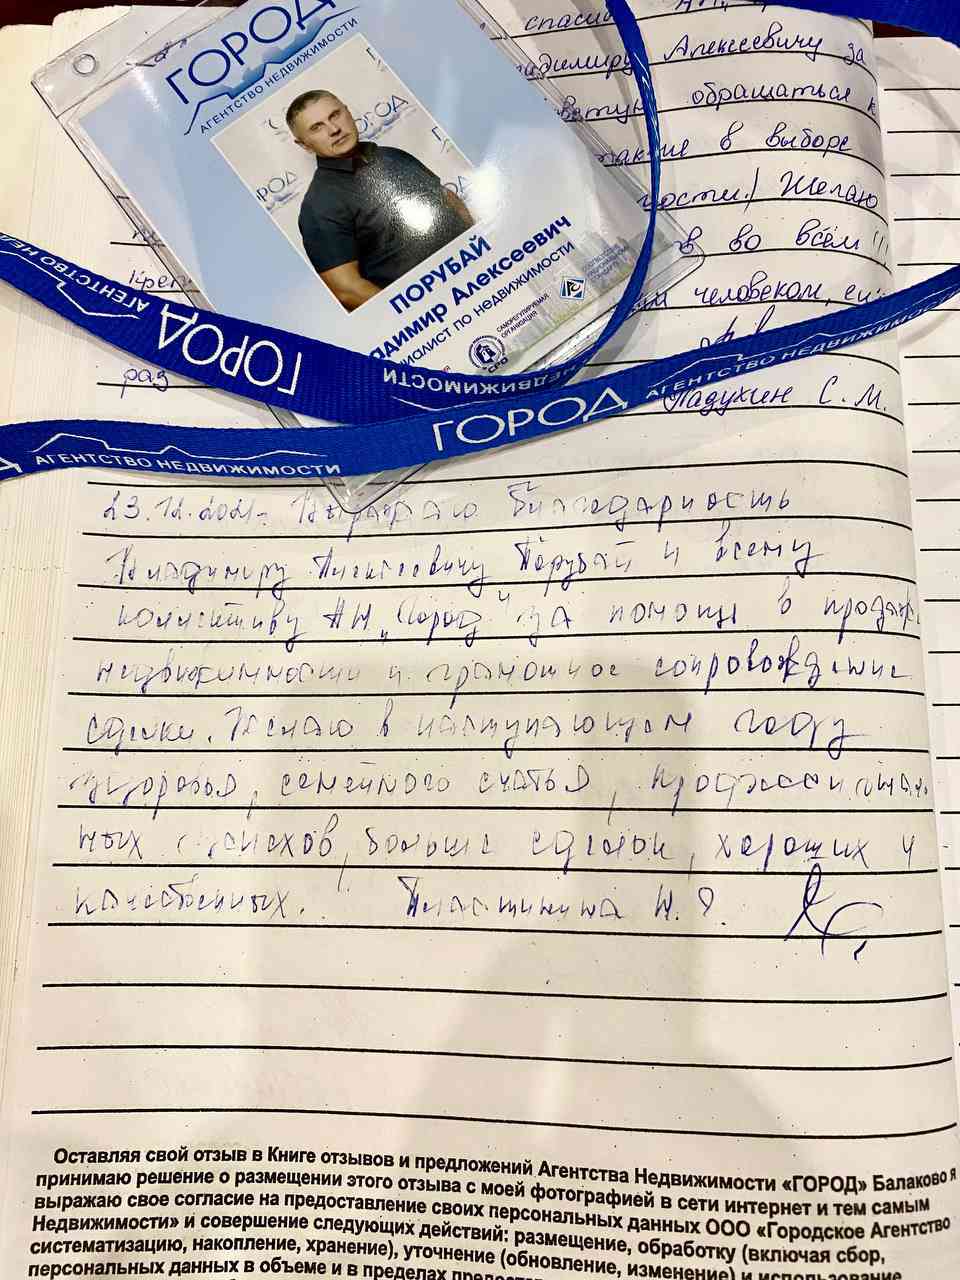 ГОРОД
АГЕНТСТВО НЕДВИЖИМОСТИ
ПОРУБАЙ
Владимир Алексеевич
специалист по недвижимости
САМОРЕГУЛИРУЕМАЯ
ОРГАНИЗАЦИЯ
Алексеевичу за
обращаться к
в выборе
Желаю
в во всём !!!
человеком,
раз
Падухин С. М.
АГЕНТСТВО НЕДВИЖИМОСТИ
ГОРОД
НЕДВИЖИМОСТИ
ГОРОД
АГЕНТСТВО НЕДВИЖИМОСТИ
АГЕНТСТВО НЕДВИЖИМОСТИ
23.12.2021г. Выражаю благодарность
Владимиру Алексеевичу Порубай и всему
коллективу АН „Город" за помощь в продаже
недвижимности и грамотное сопровождение
сделки. Желаю в наступающем году
здоровья, семейного счатья, профессиональ
ных успехов, больше сделок, хороших и
качественных. Пластинина Н.
Оставляя свой отзыв в Книге отзывов и предложений Агентства Недвижимости «ГОРОД» Балаково я
принимаю решение о размещении этого отзыва с моей фотографией в сети интернет и тем самым
выражаю свое согласие на предоставление своих персональных данных ООО «Городское Агентство
Недвижимости» и совершение следующих действий: размещение, обработку (включая сбор,
систематизацию, накопление, хранение), уточнение (обновление, изменение) и использование
персональных данных в объеме и в пределах